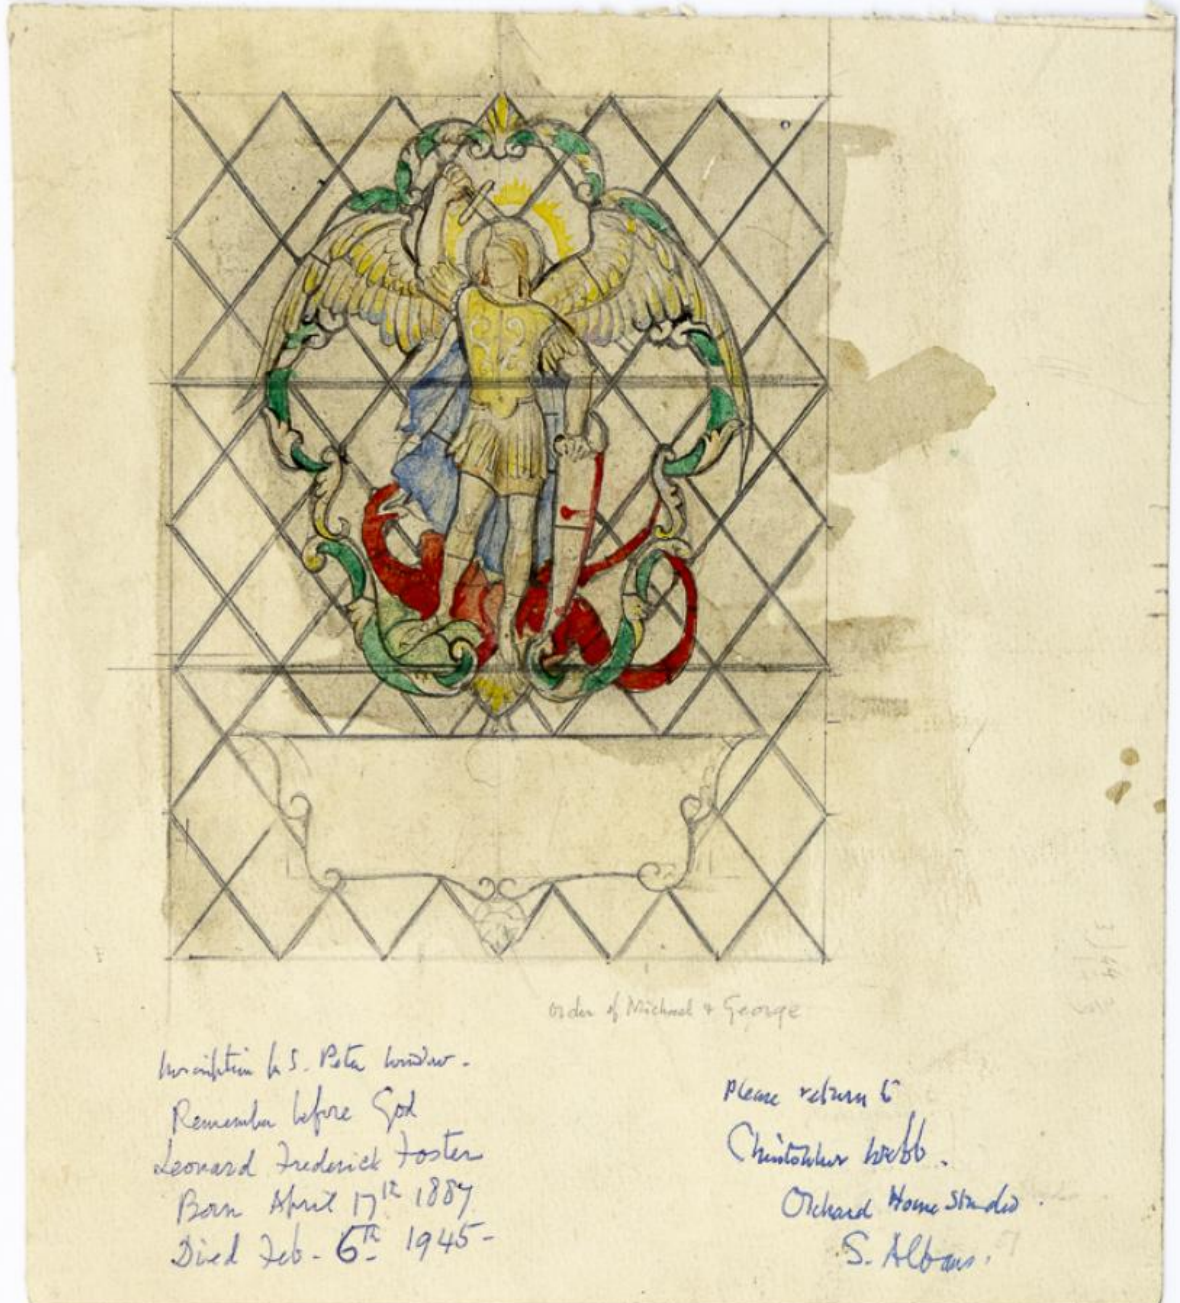 Order of Michael & George
Inscription to S. Peter window.
Remember before God
Leonard Frederick Foster
Born April 17th 1887
Died Feb. 6th 1945-
Please return to
Christopher Webb.
Orchard House Studio.
S. Albans.